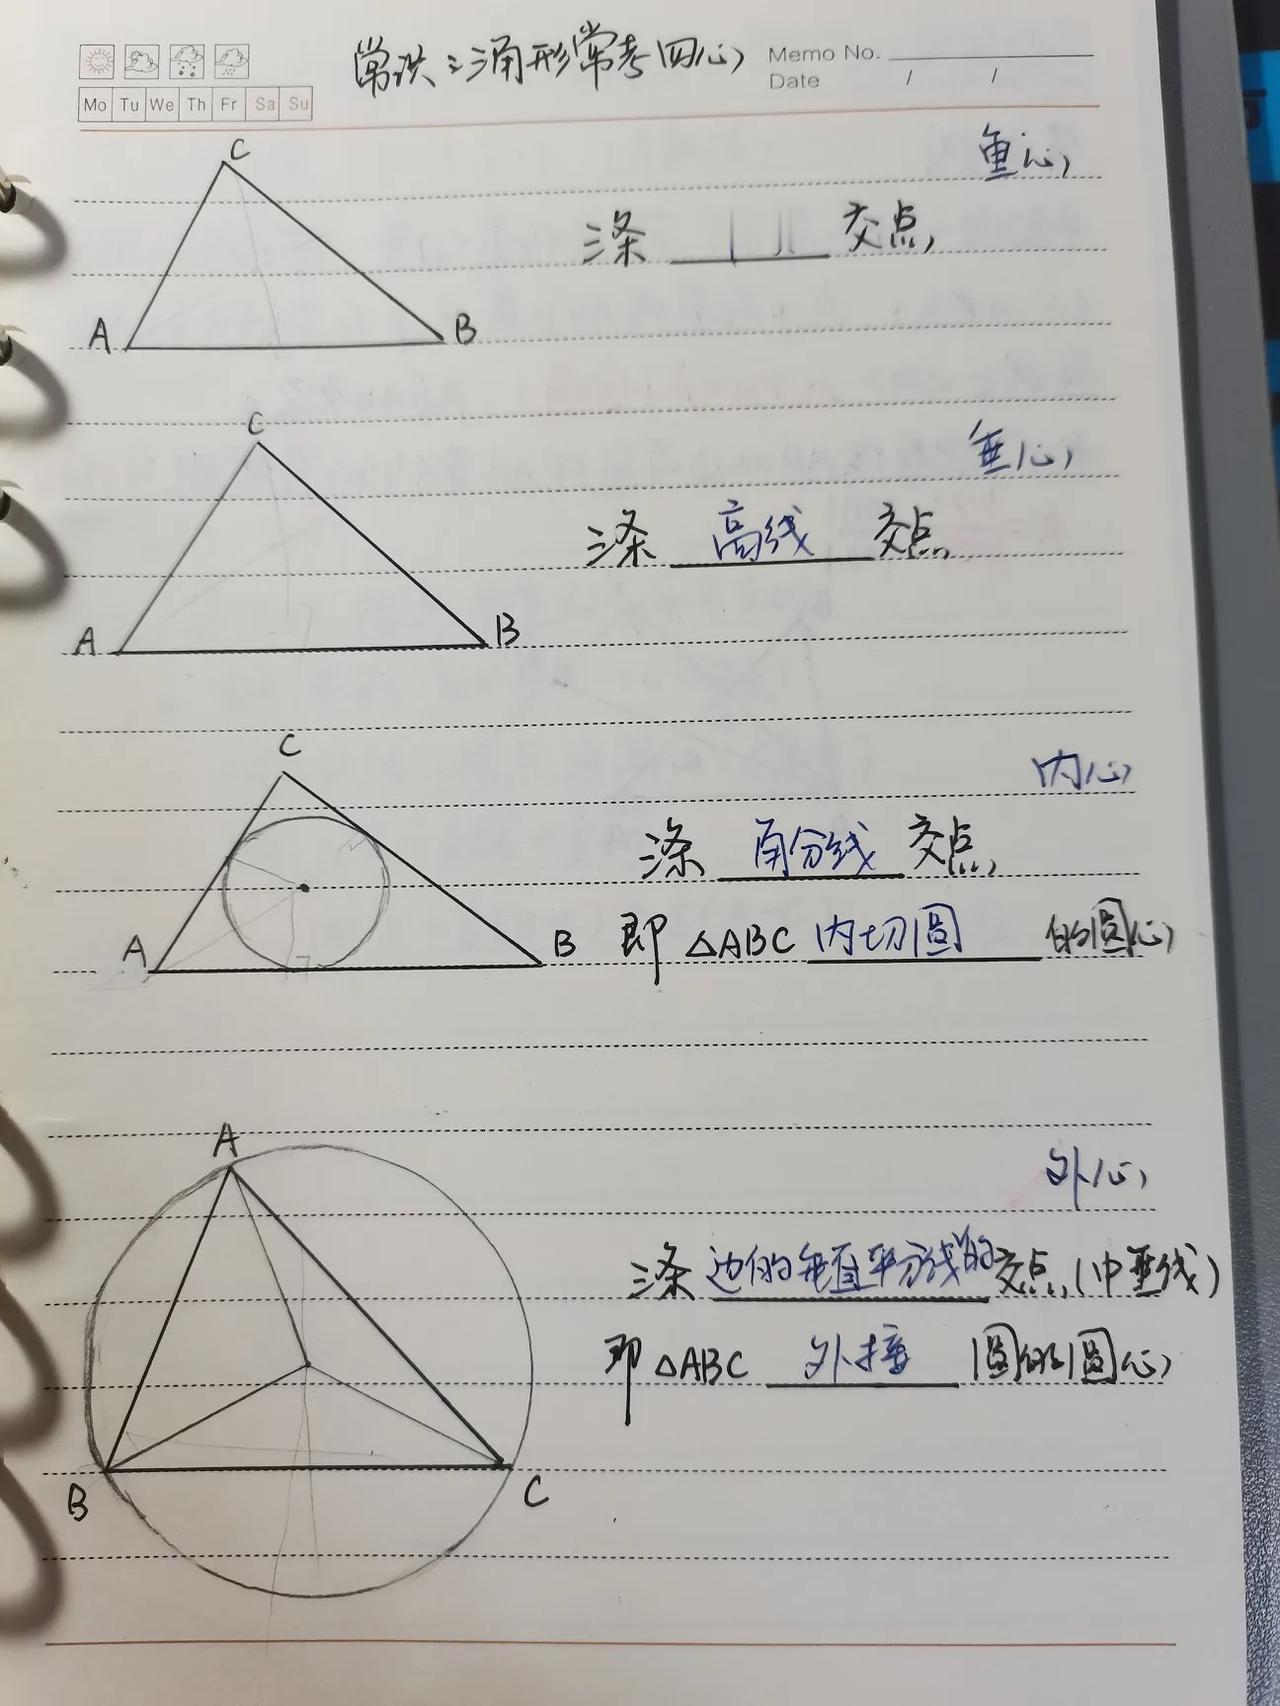 常识:三角形常考四心
Memo No.
Date / /
Mo Tu We Th Fr Sa Su
C
重心
三条 交点
A B
C
垂心
三条 高线 交点
A B
C
内心
三条 角分线 交点
A B
即 △ABC 内切圆 的圆心
A
外心
三条 边的垂直平分线的 交点(中垂线)
即 △ABC 外接 圆的圆心
B C